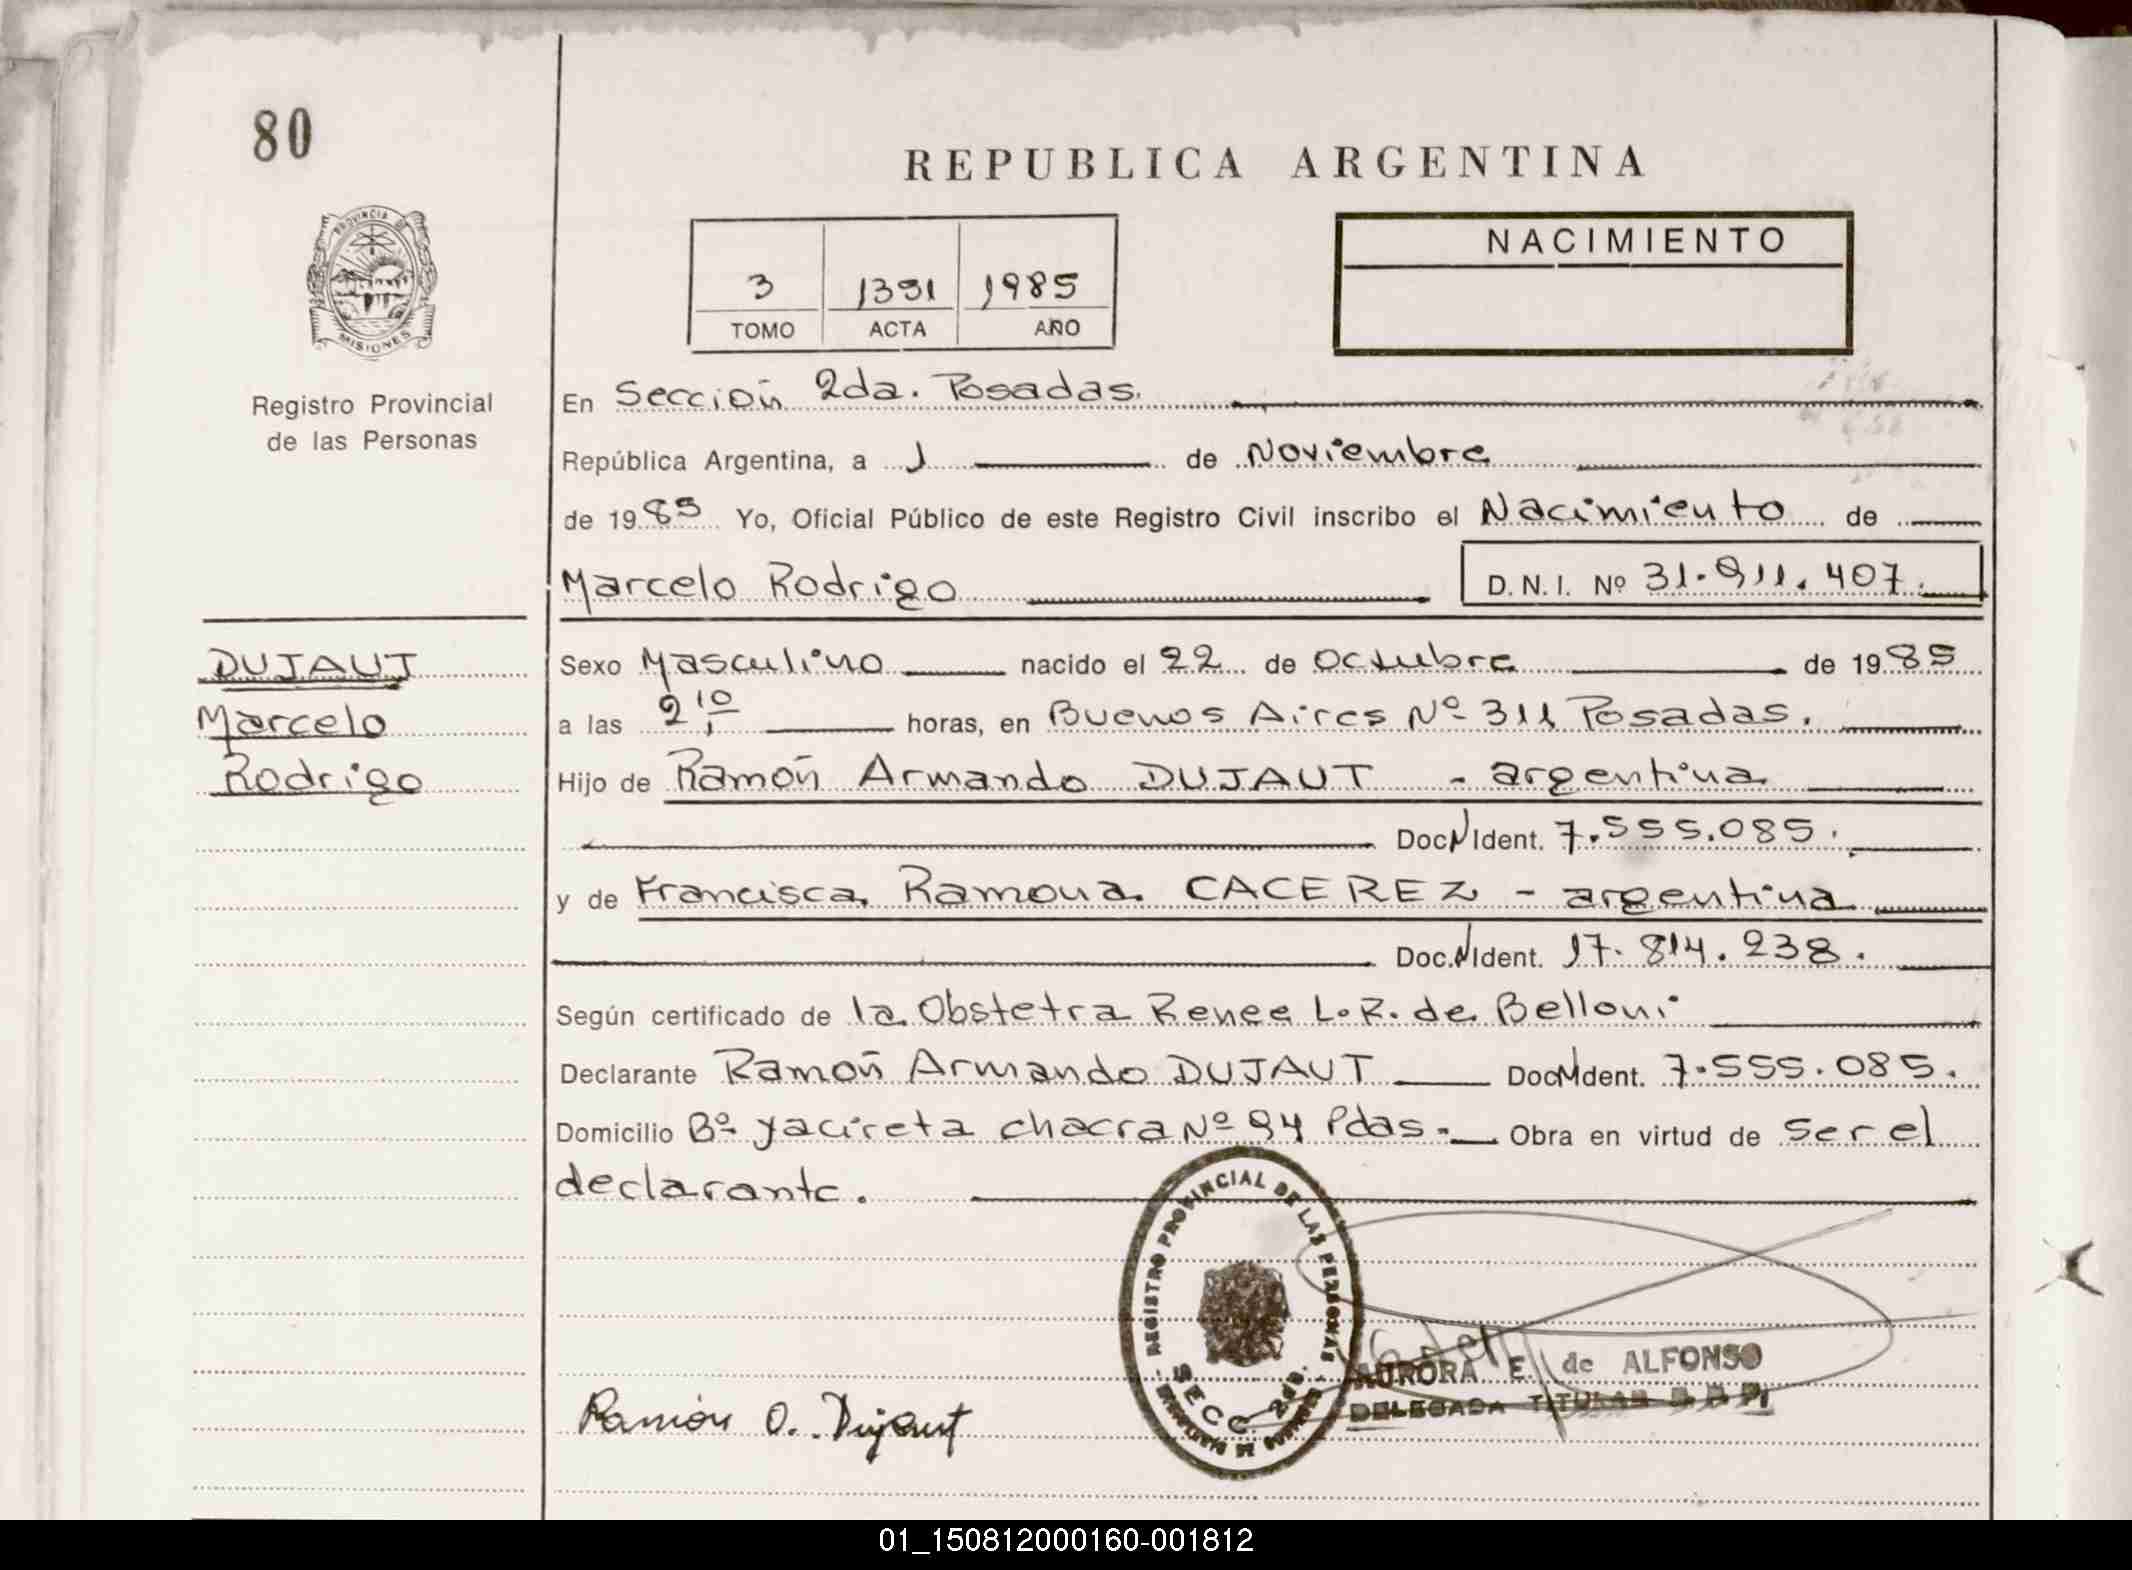 80
REPUBLICA ARGENTINA
PROVINCIA DE
MISIONES
NACIMIENTO
3 1391 1985
TOMO ACTA AÑO
Registro Provincial
de las Personas
En Sección 2da. Posadas.
República Argentina, a 1 de Noviembre
de 1985 Yo, Oficial Público de este Registro Civil inscribo el Nacimiento de
Marcelo Rodrigo D.N.I. Nº 31.911.407.
DUJAUT
Marcelo
Rodrigo
Sexo Masculino nacido el 22 de Octubre de 1985
a las 2 10 horas, en Buenos Aires Nº 311 Posadas.
Hijo de Ramón Armando DUJAUT - argentina
Doc. N Ident. 7.555.085.
y de Francisca Ramona CACEREZ - argentina
Doc. N Ident. 17.814.238.
Según certificado de la Obstetra Renee L.R. de Belloni
Declarante Ramón Armando DUJAUT Doc N Ident. 7.555.085.
Domicilio Bº yacireta chacra Nº 94 Pdas.- Obra en virtud de ser el
declarante.
REGISTRO PROVINCIAL DE LAS PERSONAS
SECC. 2da.
AURORA E. de ALFONSO
DELEGADA TITULAR
Ramón A. Dujaut
01_150812000160-001812